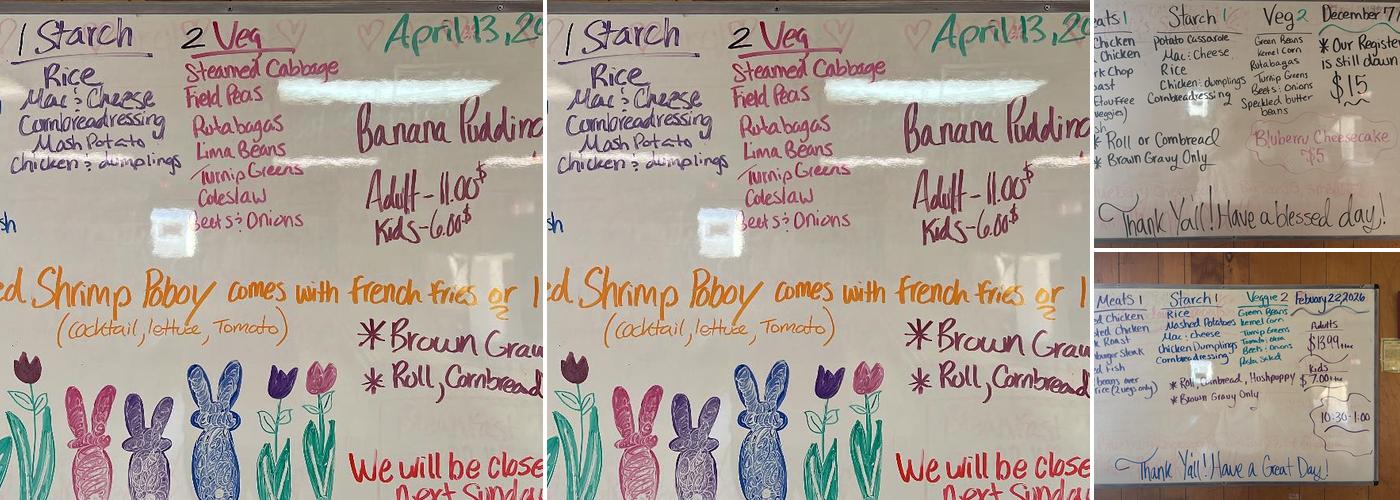 1 Starch
Rice
Mac & Cheese
Cornbreadressing
Mash Potato
Chicken & dumplings
2 Veg
Steamed Cabbage
Field Peas
Rutabagas
Lima Beans
Turnip Greens
Coleslaw
Beets & Onions
April 13, 20
Banana Pudding
Adult - 11.00$
Kids - 6.00$
sh
ed Shrimp Poboy comes with french fries or 1
(cocktail, lettuce, Tomato)
* Brown Grav
* Roll, Cornbread
We will be close
next Sunday
1 Starch
Rice
Mac & Cheese
Cornbreadressing
Mash Potato
Chicken & dumplings
2 Veg
Steamed Cabbage
Field Peas
Rutabagas
Lima Beans
Turnip Greens
Coleslaw
Beets & Onions
April 13, 20
Banana Pudding
Adult - 11.00$
Kids - 6.00$
sh
ed Shrimp Poboy comes with french fries or 1
(cocktail, lettuce, Tomato)
* Brown Grav
* Roll, Cornbread
We will be close
next Sunday
eats 1
Chicken
Chicken
rk Chop
oast
Etouffee
veggies)
sh
Starch 1
Potato Cassarole
Mac & Cheese
Rice
Chicken & dumplings
Cornbreadressing
Veg 2
Green Beans
Kernel Corn
Rutabagas
Turnip Greens
Beets & Onions
Speckled butter
beans
December 7,
* Our Register
is still down
$15
* Roll or Cornbread
* Brown Gravy Only
Bluberry Cheesecake
$5
Thank Ya'll! Have a blessed day!
Meats 1
d Chicken
ted Chicken
k Roast
burger Steak
d Fish
beans over
rice (2 vegs only)
Starch 1
Rice
Mashed Potatoes
Mac & cheese
Chicken Dumplings
Cornbreadressing
Veggie 2
Green Beans
Kernel Corn
Turnip Greens
Tomato & okra
Beets & Onions
Pasta Salad
Febuary 22, 2026
Adults
$13.99 + tax
Kids
$7.00 + tax
10:30-1:00
* Roll, Cornbread, Hushpuppy
* Brown Gravy Only
Thank Ya'll! Have a Great Day!